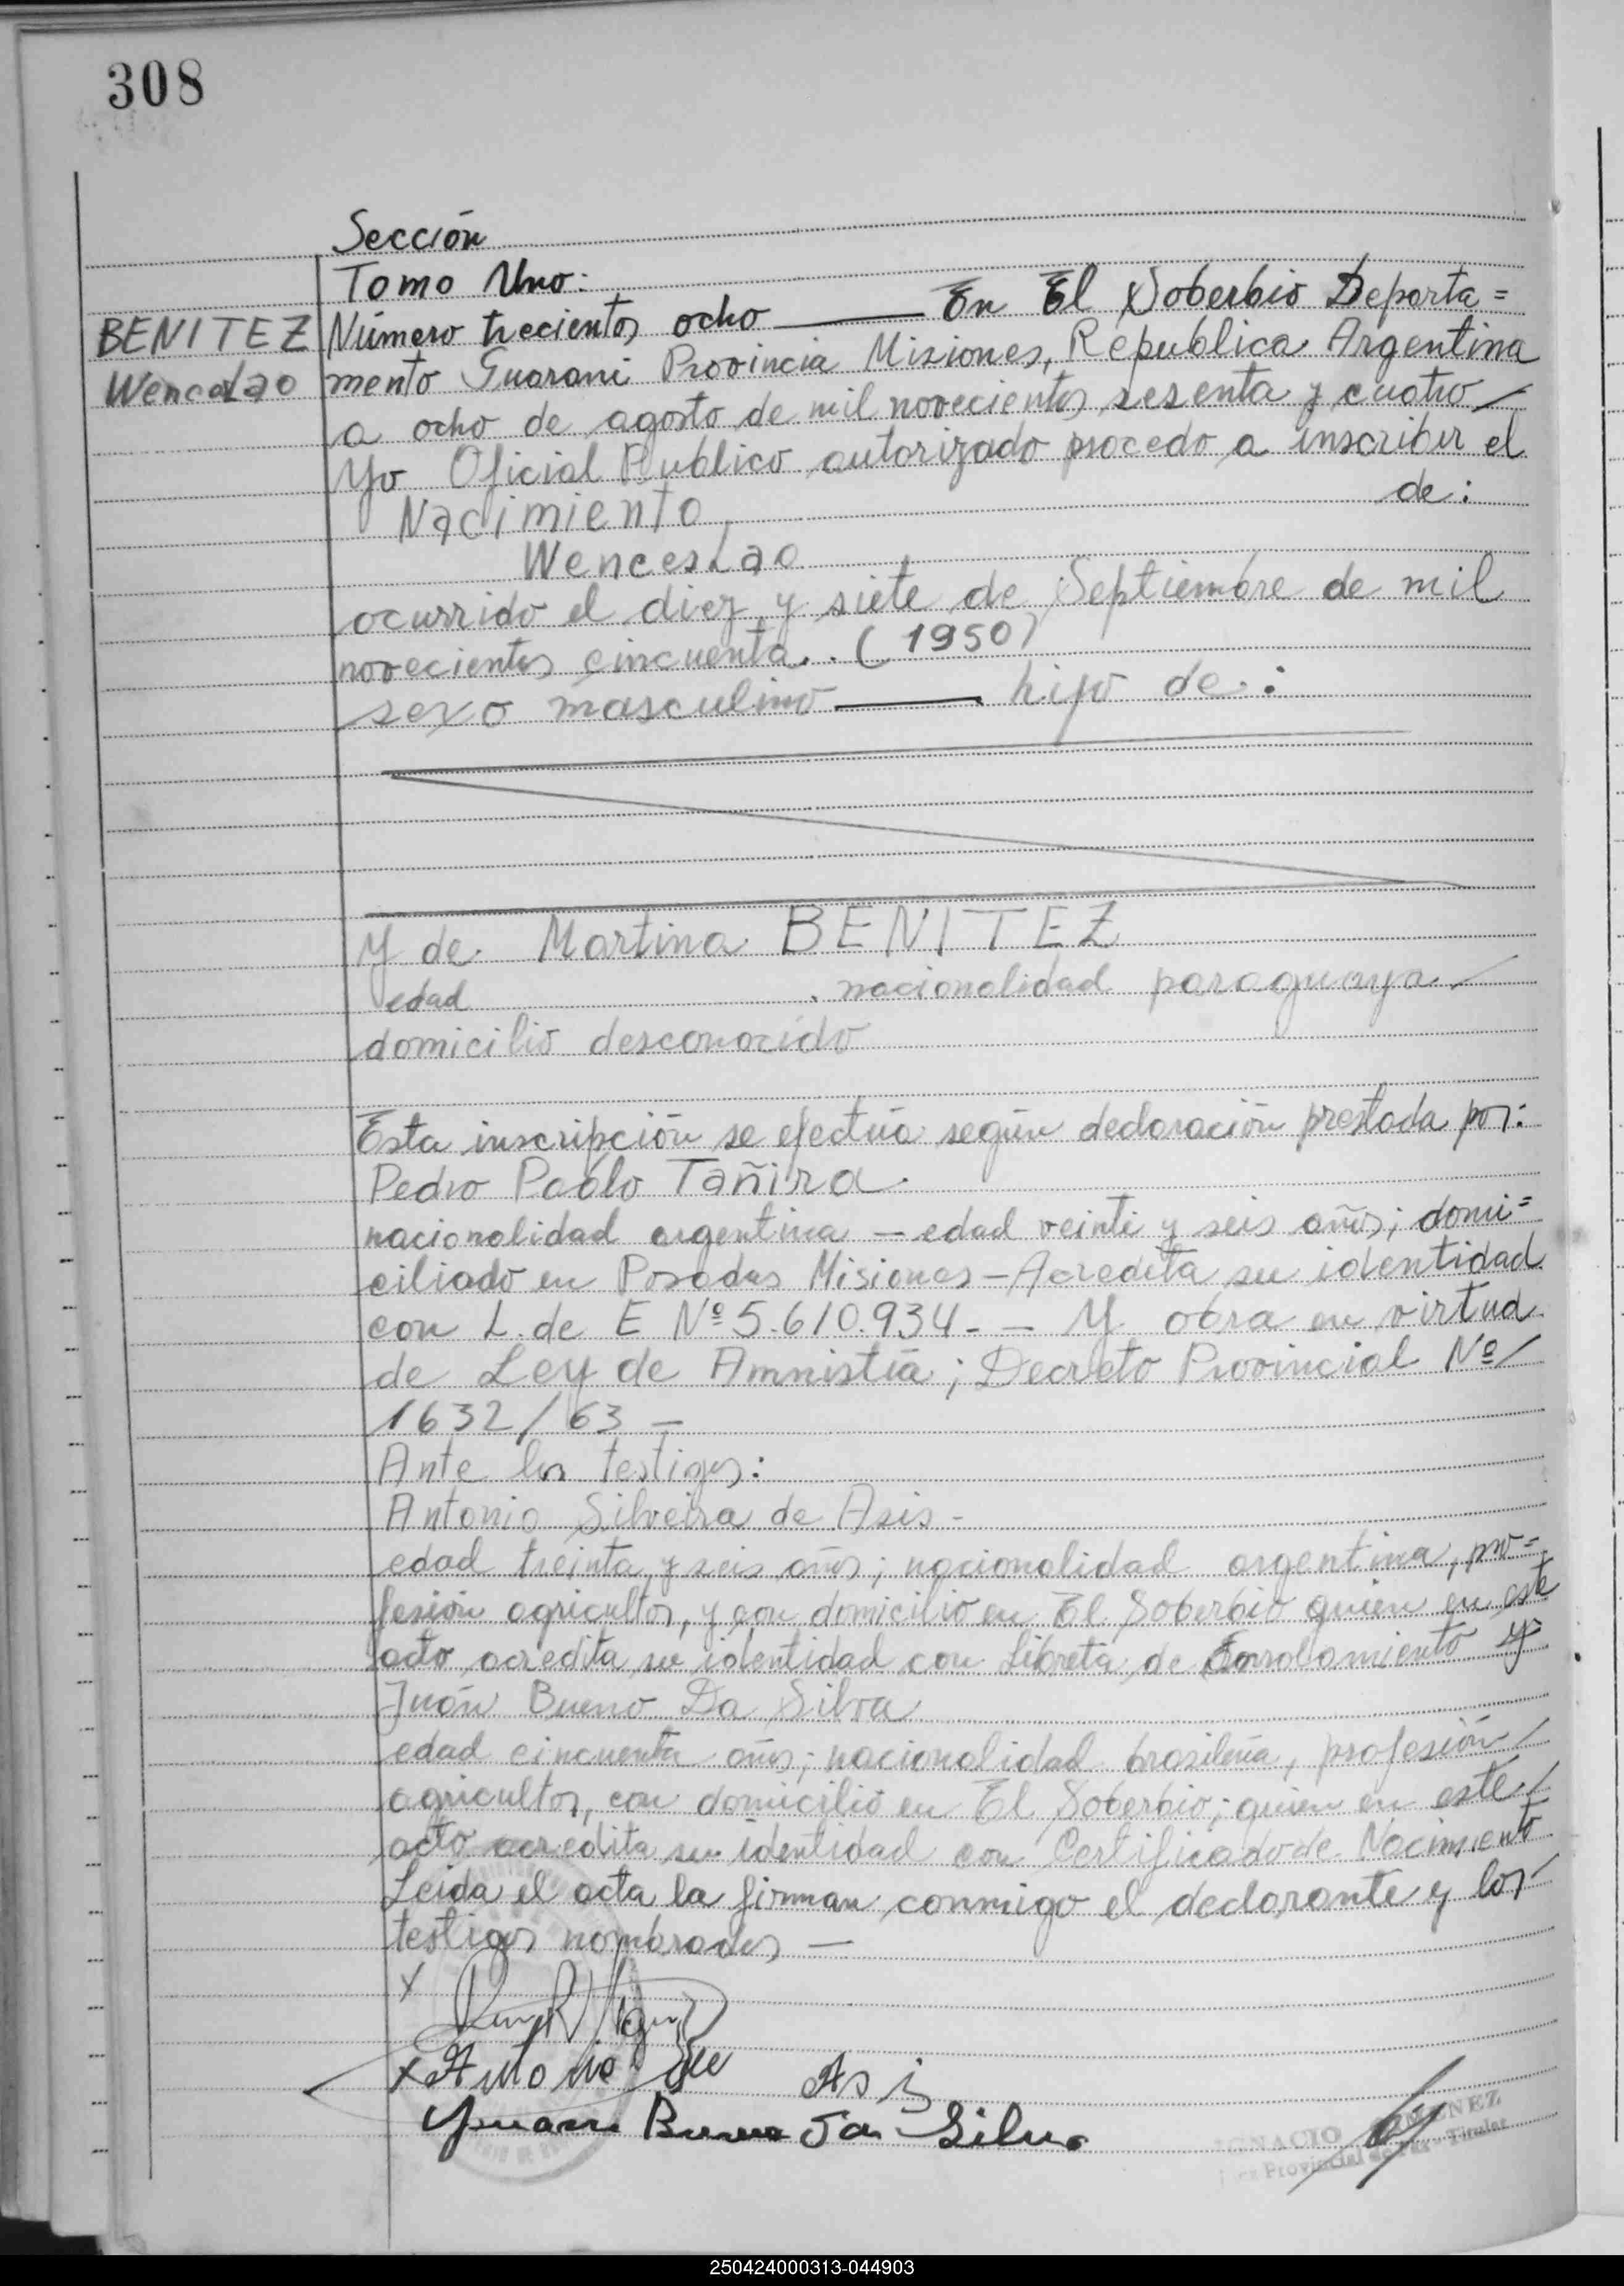 308
Sección
Tomo Uno:
BENITEZ
Wencelao
Número trecientos ocho — En El Soberbio Departa=
mento Guarani Provincia Misiones, Republica Argentina
a ocho de agosto de mil novecientos sesenta y cuatro
Yo Oficial Publico autorizado procedo a inscribir el
Nacimiento de:
Wenceslao
ocurrido el diez y siete de Septiembre de mil
novecientos cincuenta. . (1950)
sexo masculino — hijo de:
Y de Martina BENITEZ
edad . nacionalidad paraguaya
domicilio desconocido
Esta inscripción se efectúa según declaración prestada por:
Pedro Pablo Tañira
nacionalidad argentina — edad veinte y seis años; domi=
ciliado en Posadas Misiones — Acredita su identidad
con L. de E Nº 5.610.934. — Y obra en virtud
de Ley de Amnistía; Decreto Provincial Nº
1632/63 —
Ante los testigos:
Antonio Silveira de Asis -
edad treinta y seis años; nacionalidad argentina, pro=
fesión agricultor, y con domicilio en El Soberbio quien en este
acto acredita su identidad con Libreta de Enrolamiento y
Juán Bueno Da Silva
edad cincuenta años; nacionalidad brasileña, profesión
agricultor, con domicilio en El Soberbio; quien en este
acto acredita su identidad con Certificado de Nacimiento
Leida el acta la firman conmigo el declarante y los
testigos nombrados —
x
x Antonio de Asis
Juan Bueno Da Silva
IGNACIO
Juez Provincial de Paz - Titular
250424000313-044903